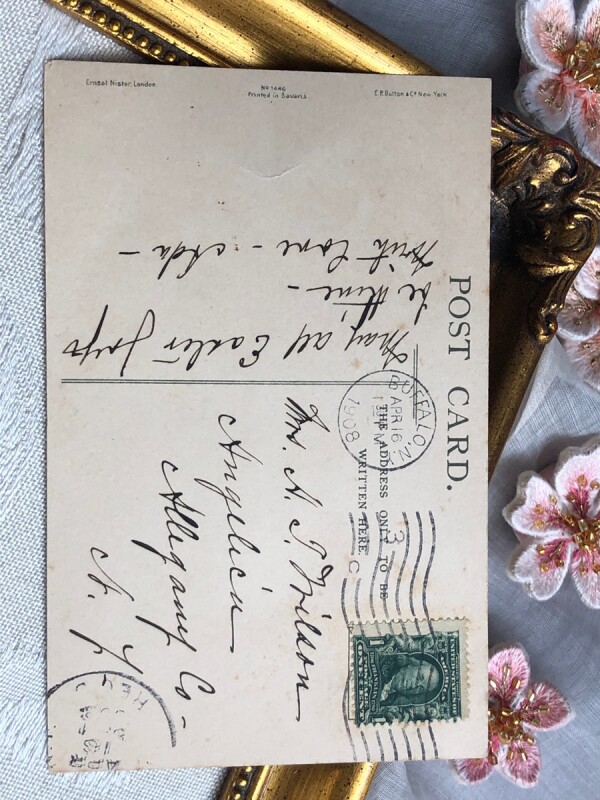 Ernest Nister, London.
No 1646
Printed in Bavaria
E.P. Dutton & Co New York
POST CARD.
THE ADDRESS ONLY TO BE
WRITTEN HERE.
May all Easter Joys
be thine -
With love - Ada -
BUFFALO
APR 16
1908
3
C
UNITED STATES
ONE CENT
Mrs. A. T. Wilson
Angelica
Allegany Co -
N. Y.